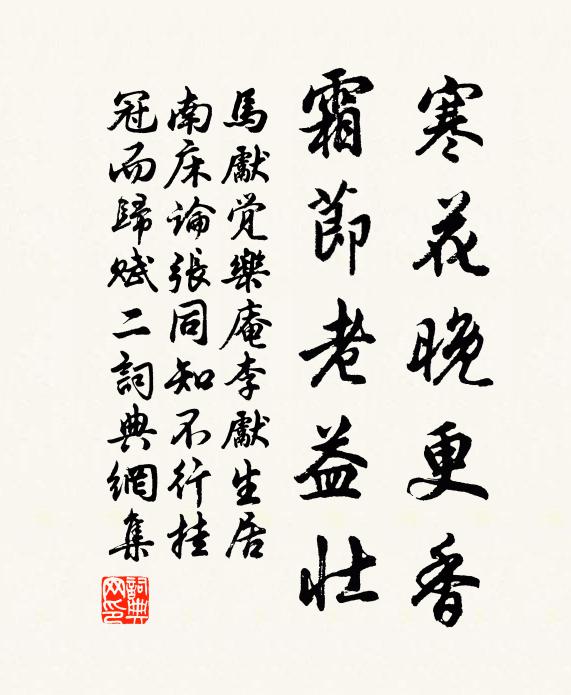 寒花晚更香
霜節老益壯
馬獻覚樂庵李獻生居
南床論張同知不行挂
冠而歸賦二詞典網集
詞典網印